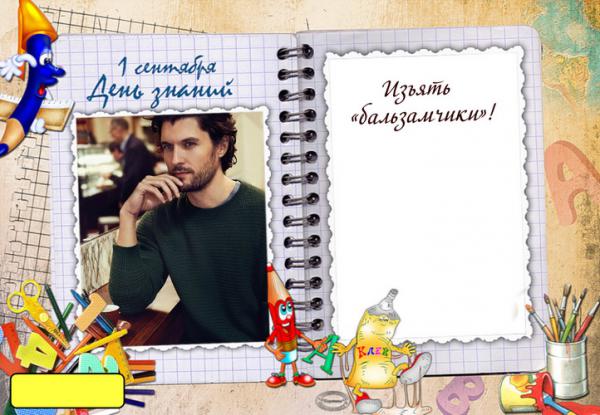 1 сентября
День знаний
Изъять
«бальзамчики»!
А
Клей